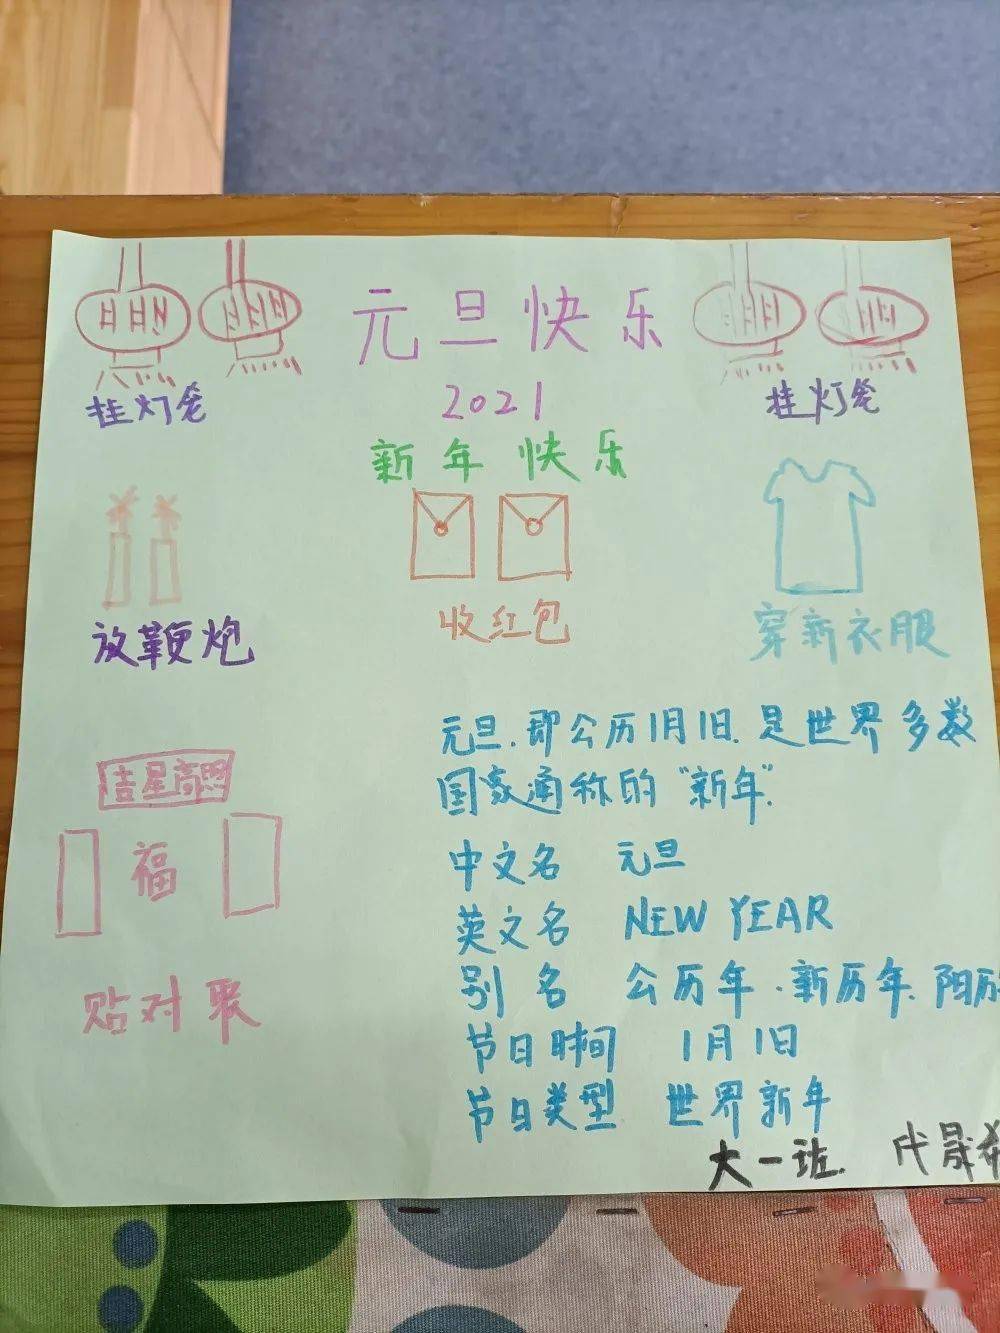 元旦快乐
2021
挂灯笼
挂灯笼
新年快乐
放鞭炮
收红包
穿新衣服
元旦,即公历1月1日.是世界多数
国家通称的"新年".
吉星高照
福
贴对联
中文名 元旦
英文名 NEW YEAR
别名 公历年.新历年.阳历
节日时间 1月1日
节日类型 世界新年
大一班. 代晟